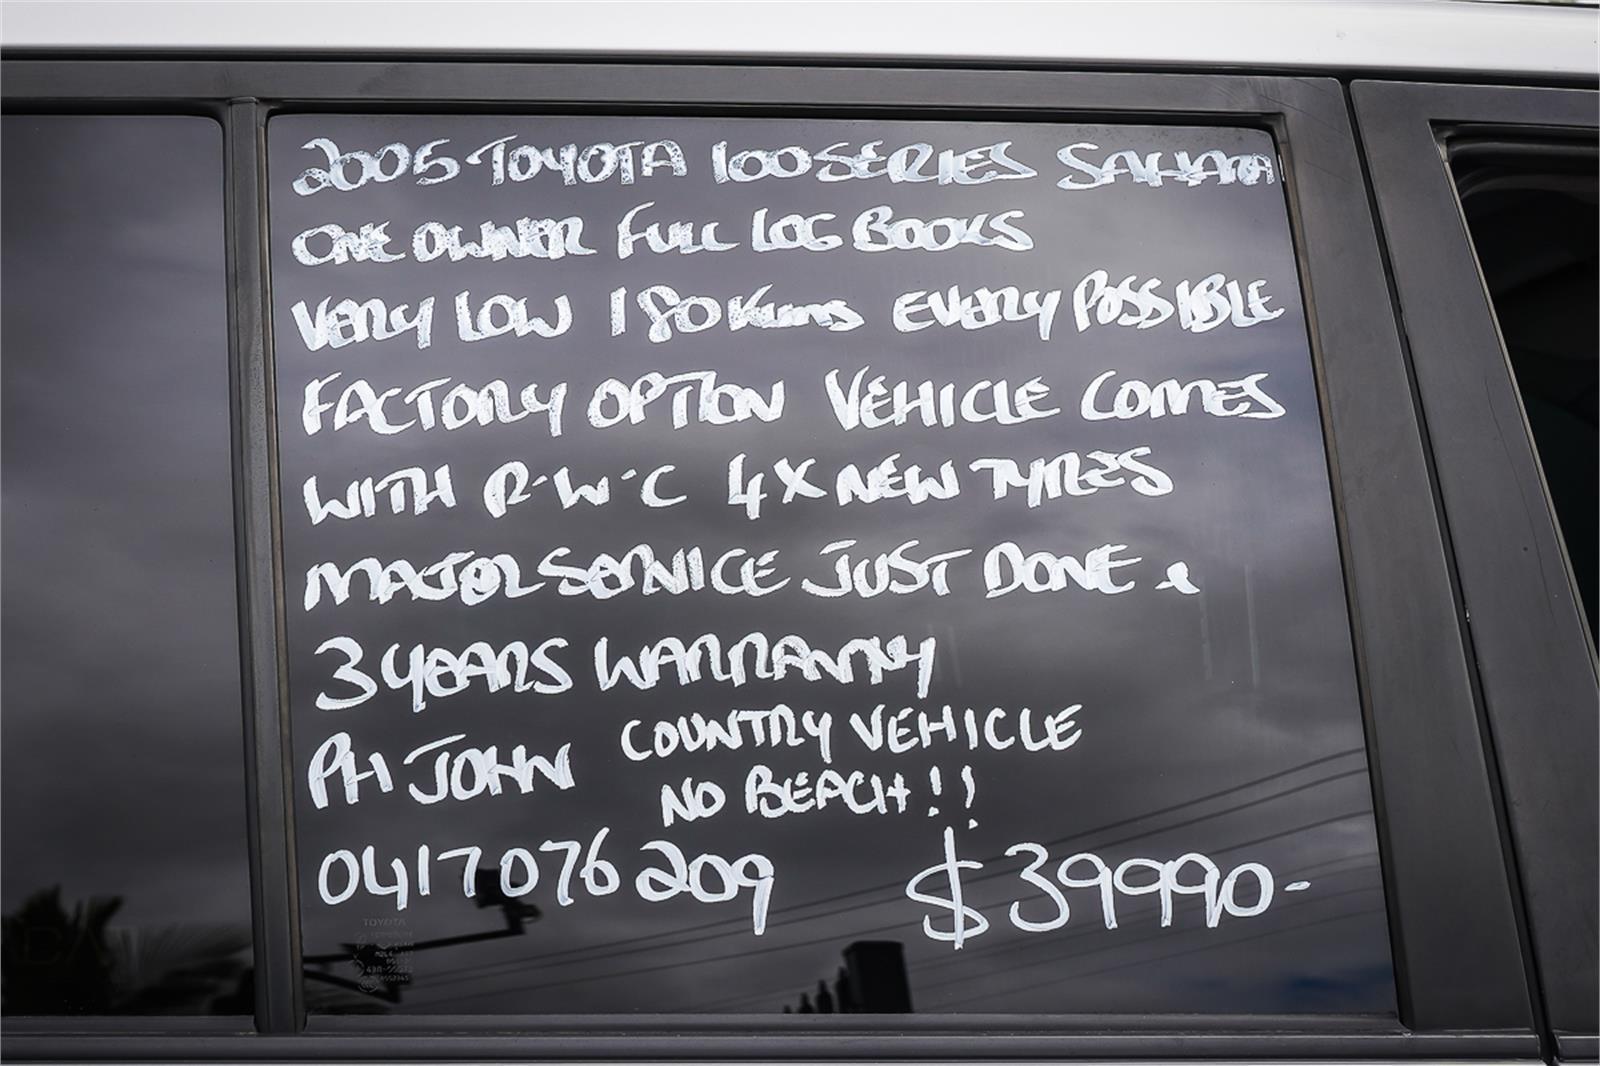 2005 TOYOTA 100 SERIES SAHARA
ONE OWNER FULL LOG BOOKS
VERY LOW 180 Kms EVERY POSSIBLE
FACTORY OPTION VEHICLE COMES
WITH R-W-C 4X NEW TYRES
MAJOR SERVICE JUST DONE &
3 YEARS WARRANTY
PH JOHN COUNTRY VEHICLE
NO BEACH!!
0417076209 $39990-
TOYOTA